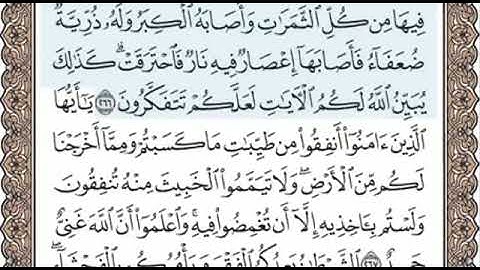 فِيهَا مِن كُلِّ الثَّمَرَٰتِ وَأَصَابَهُ الْكِبَرُ وَلَهُۥ ذُرِّيَّةٌ
ضُعَفَآءُ فَأَصَابَهَآ إِعْصَارٌ فِيهِ نَارٌ فَاحْتَرَقَتْ ۗ كَذَٰلِكَ
يُبَيِّنُ اللَّهُ لَكُمُ الْءَايَٰتِ لَعَلَّكُمْ تَتَفَكَّرُونَ ٢٦٦ يَٰٓأَيُّهَا
الَّذِينَ ءَامَنُوٓا۟ أَنفِقُوا۟ مِن طَيِّبَٰتِ مَا كَسَبْتُمْ وَمِمَّآ أَخْرَجْنَا
لَكُم مِّنَ الْأَرْضِ ۖ وَلَا تَيَمَّمُوا۟ الْخَبِيثَ مِنْهُ تُنفِقُونَ
وَلَسْتُم بِـَٔاخِذِيهِ إِلَّآ أَن تُغْمِضُوا۟ فِيهِ ۚ وَاعْلَمُوٓا۟ أَنَّ اللَّهَ غَنِىٌّ
حَمِيدٌ ٢٦٧ الشَّيْطَٰنُ يَعِدُكُمُ الْفَقْرَ وَيَأْمُرُكُم بِالْفَحْشَآءِ ۖ